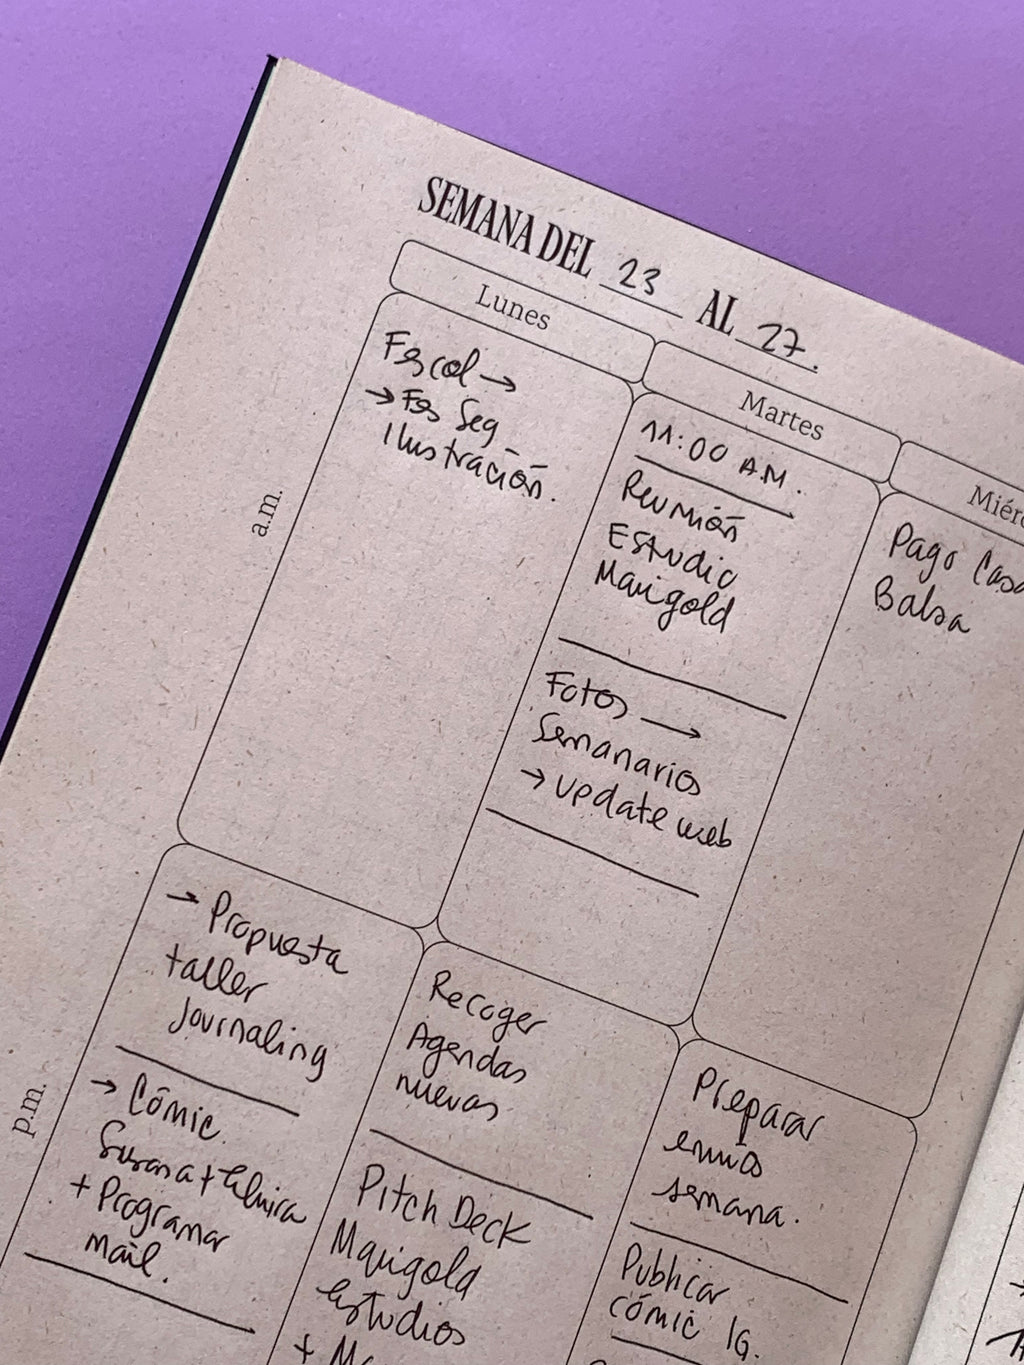 SEMANA DEL 23 AL 27.
Lunes
Martes
Miérc
a.m.
→
→ Seg
Ilustración.
11:00 A.M.
Reunión
Estudio
Marigold
Fotos →
Semanarios
→ update web
Pago Casa
Balsa
p.m.
→ Propuesta
taller
Journaling
→ Cómic
Susana +
+ Programar
mail.
Recoger
Agendas
nuevas
Pitch Deck
Marigold
estudios
+ M
Preparar
envíos
semana.
Publicar
cómic IG.